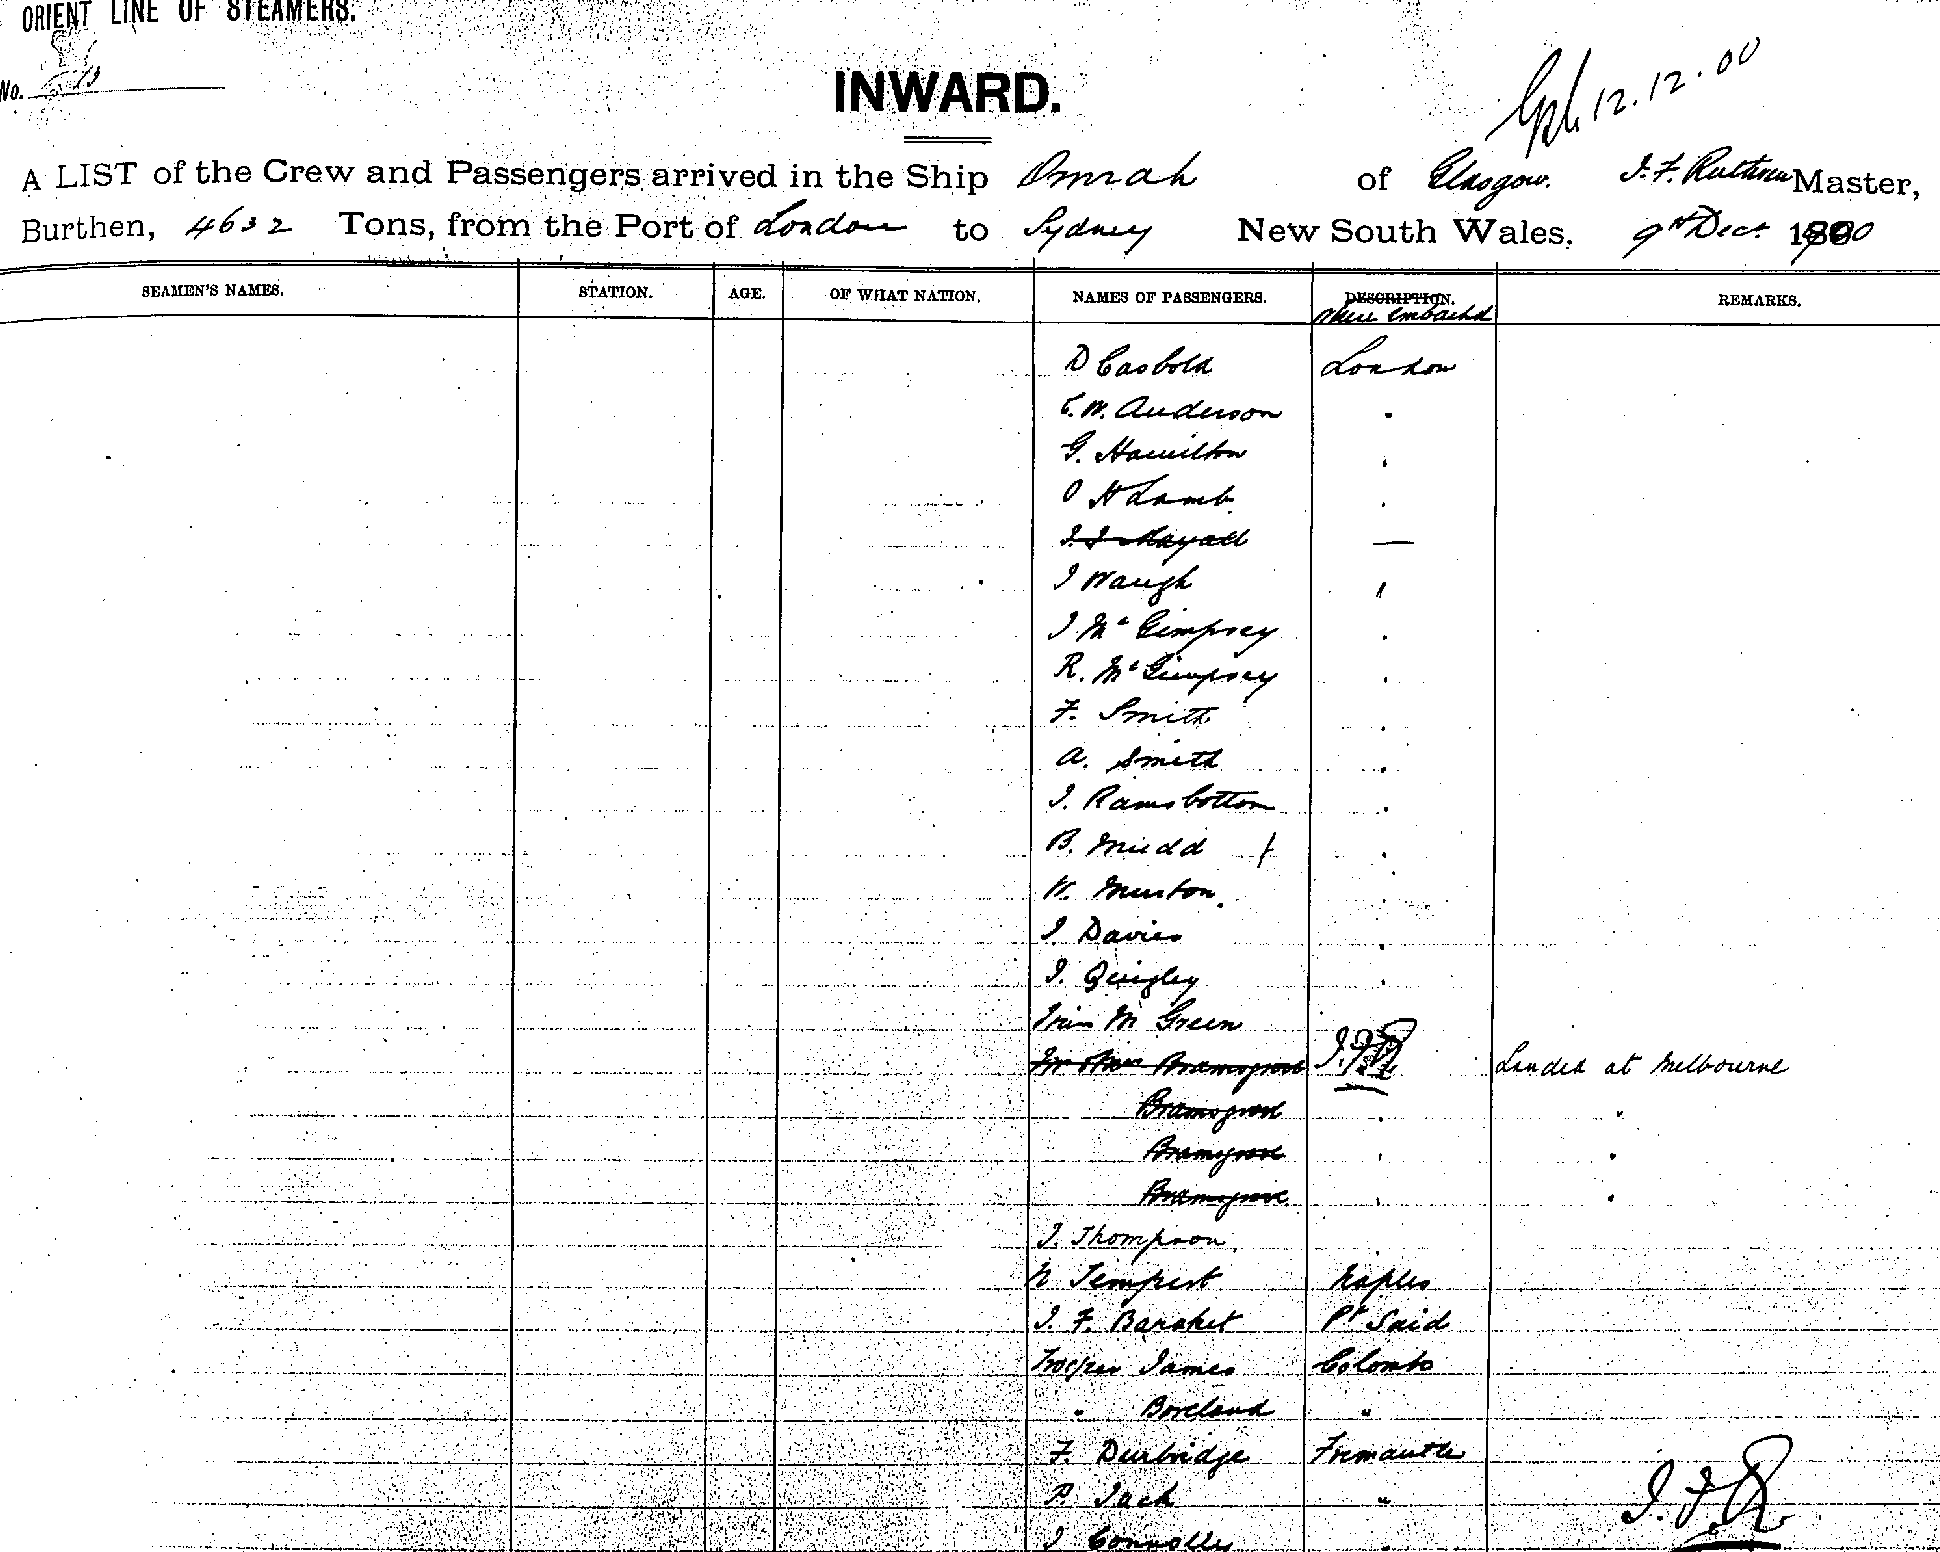 ORIENT LINE OF STEAMERS.
No.
INWARD.
12.12.00
A LIST of the Crew and Passengers arrived in the Ship Omrah of Glasgow. J. F. Ruthven Master,
Burthen, 4632 Tons, from the Port of London to Sydney New South Wales. 9th Dec. 1900
SEAMEN'S NAMES. STATION. AGE. OF WHAT NATION. NAMES OF PASSENGERS. DESCRIPTION. REMARKS.
Where Embarkd
D Casbold London
E. W. Anderson
G. Hamilton
O H Lamb
J. J. Mayall —
J Waugh "
J Mc Gimpsey
R. Mc Gimpsey
F. Smith
A. Smith
J. Ramsbottom
B. Mudd
W. Murton
J. Davies
J. Quigley
M Green
Mr & Mrs Bramsgrove J.F.R. Landed at Melbourne
Bramsgrove "
Bramsgrove "
Bramsgrove "
J. Thompson
N Tempest Naples
J. F. Baraket Pt Said
Trooper James Colombo
" Boreland "
F. Durbridge Fremantle
P. Jack "
J. F. R.
J Connolly